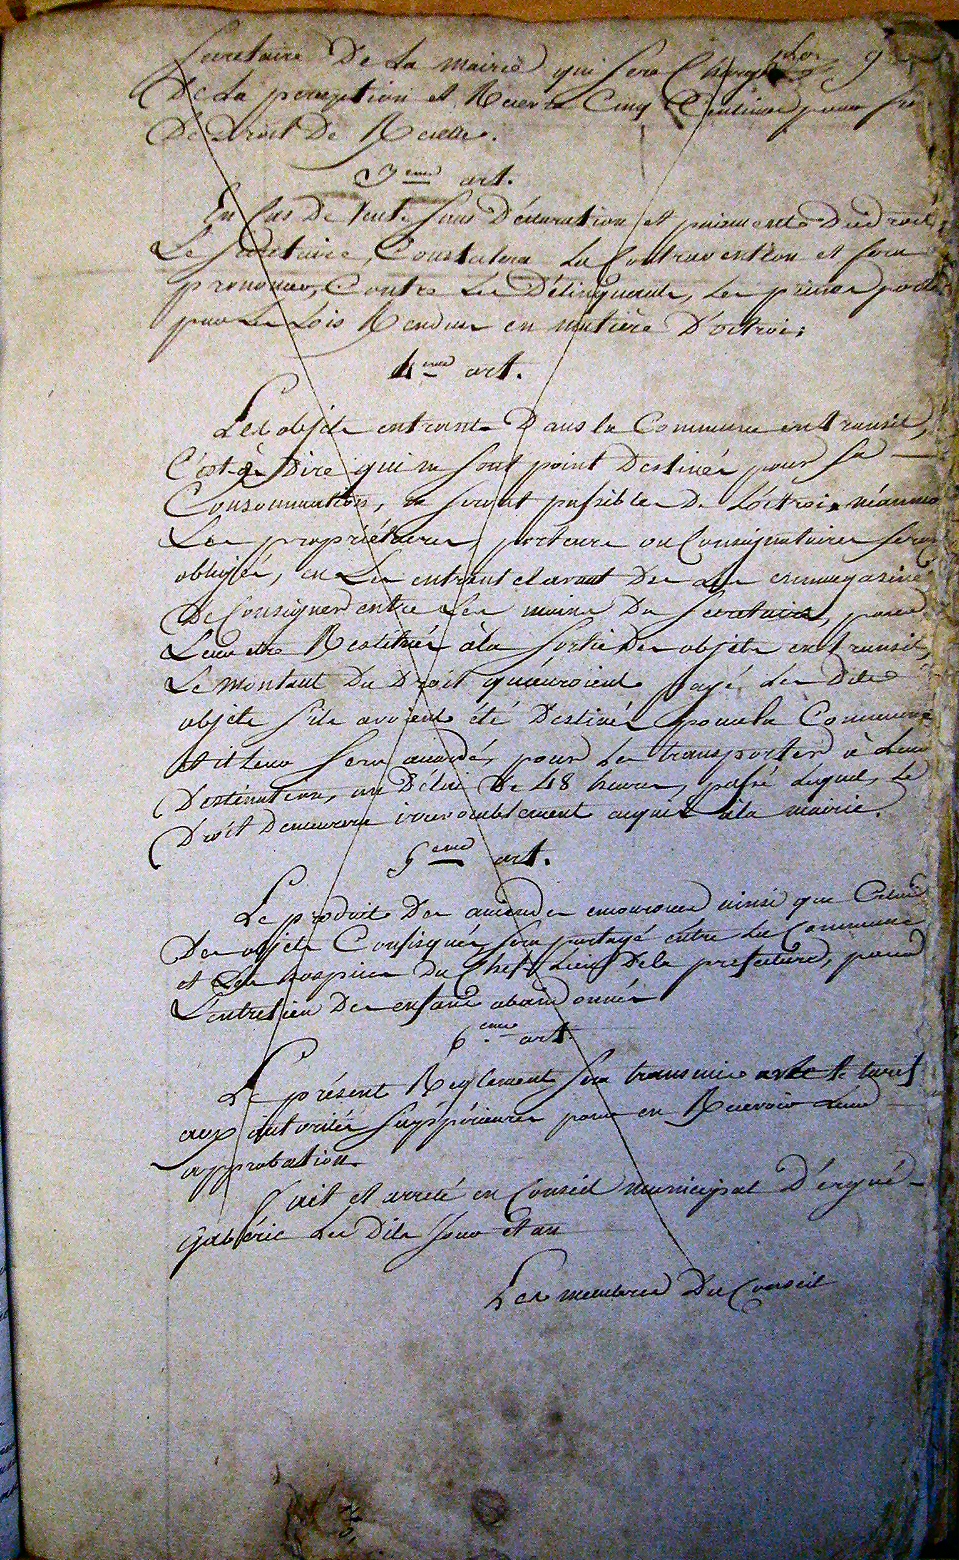 Secretaire De La Mairie qui Sera Chargé 9
De La perception et Recevra Cinq Centimes pour
De Droit De Recette.
3eme art.
En Cas De Vente Sans Déclaration et paiement Du droit,
Le Secretaire, Constatera La Contravention et fera
prononcer, Contre Les Délinquants, Les peines
par Les Lois Rendues en matière D'octroi;
4eme art.
Les objets entrants Dans la Commune en transit,
C'est-à Dire qui ne Sont point Destinés pour Sa
Consommation, ne seront passibles De L'octroi, néanmo
Les propriétaires, porteurs ou Consignataires seron
obligés, en Les entrant et avant De Les emmagasiner
De Consigner entre Les mains Du Secretaire, pour
Leur etre Restitué à la Sortie Des objets en transit,
Le Montant Du Droit qu'auroient payé Les Dits
objets s'ils avoient été Destinés pour la Commune
et il Leur Sera accordé, pour Les transporter à Leur
Destination, un Délai De 48 heures, passé Lequel, Le
Droit Demeurera irrévocablement acquis à la mairie.
5eme art.
Le produit Des amendes encourues ainsi que Celui
Des objets Confisqués, Sera partagé entre La Commune
et Les hospices Du Chef Lieu De la prefecture, pour
L'entretien Des enfans abandonnés
6eme art.
Le présent Reglement Sera transmis avec le tarif
aux autorités Suppérieures pour en Recevoir Leur
approbation.
Fait et arreté en Conseil municipal D'érgué-
gabéric Les Dits Jour et an
Les membres Du Conseil